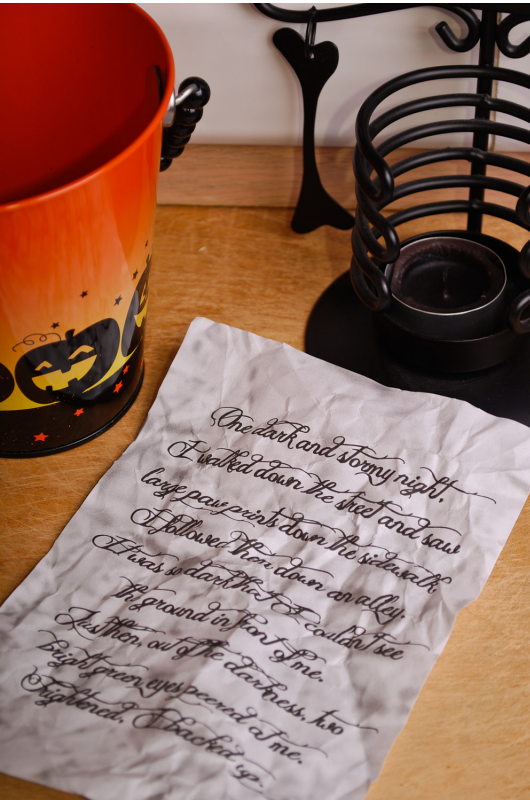 One dark and stormy night,
I walked down the street and saw
large paw prints down the sidewalk
I followed them down an alley.
It was so dark that I couldn't see
the ground in front of me.
Just then, out of the darkness, two
bright green eyes peered at me.
Frightened, I backed up.